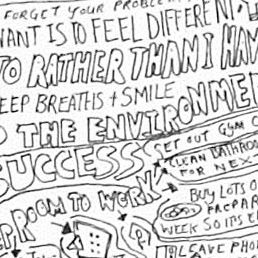 FORGET YOUR PROBLEM
WANT IS TO FEEL DIFFERENT
TO RATHER THAN I HAV
EEP BREATHS + SMILE
THE ENVIRONME
SUCCESS
SET OUT GYM C
CLEAN BATHROO
FOR NEX
BUY LOTS O
PREPAR
WEEK SO ITS E
ROOM TO WORK
LEAVE PHO